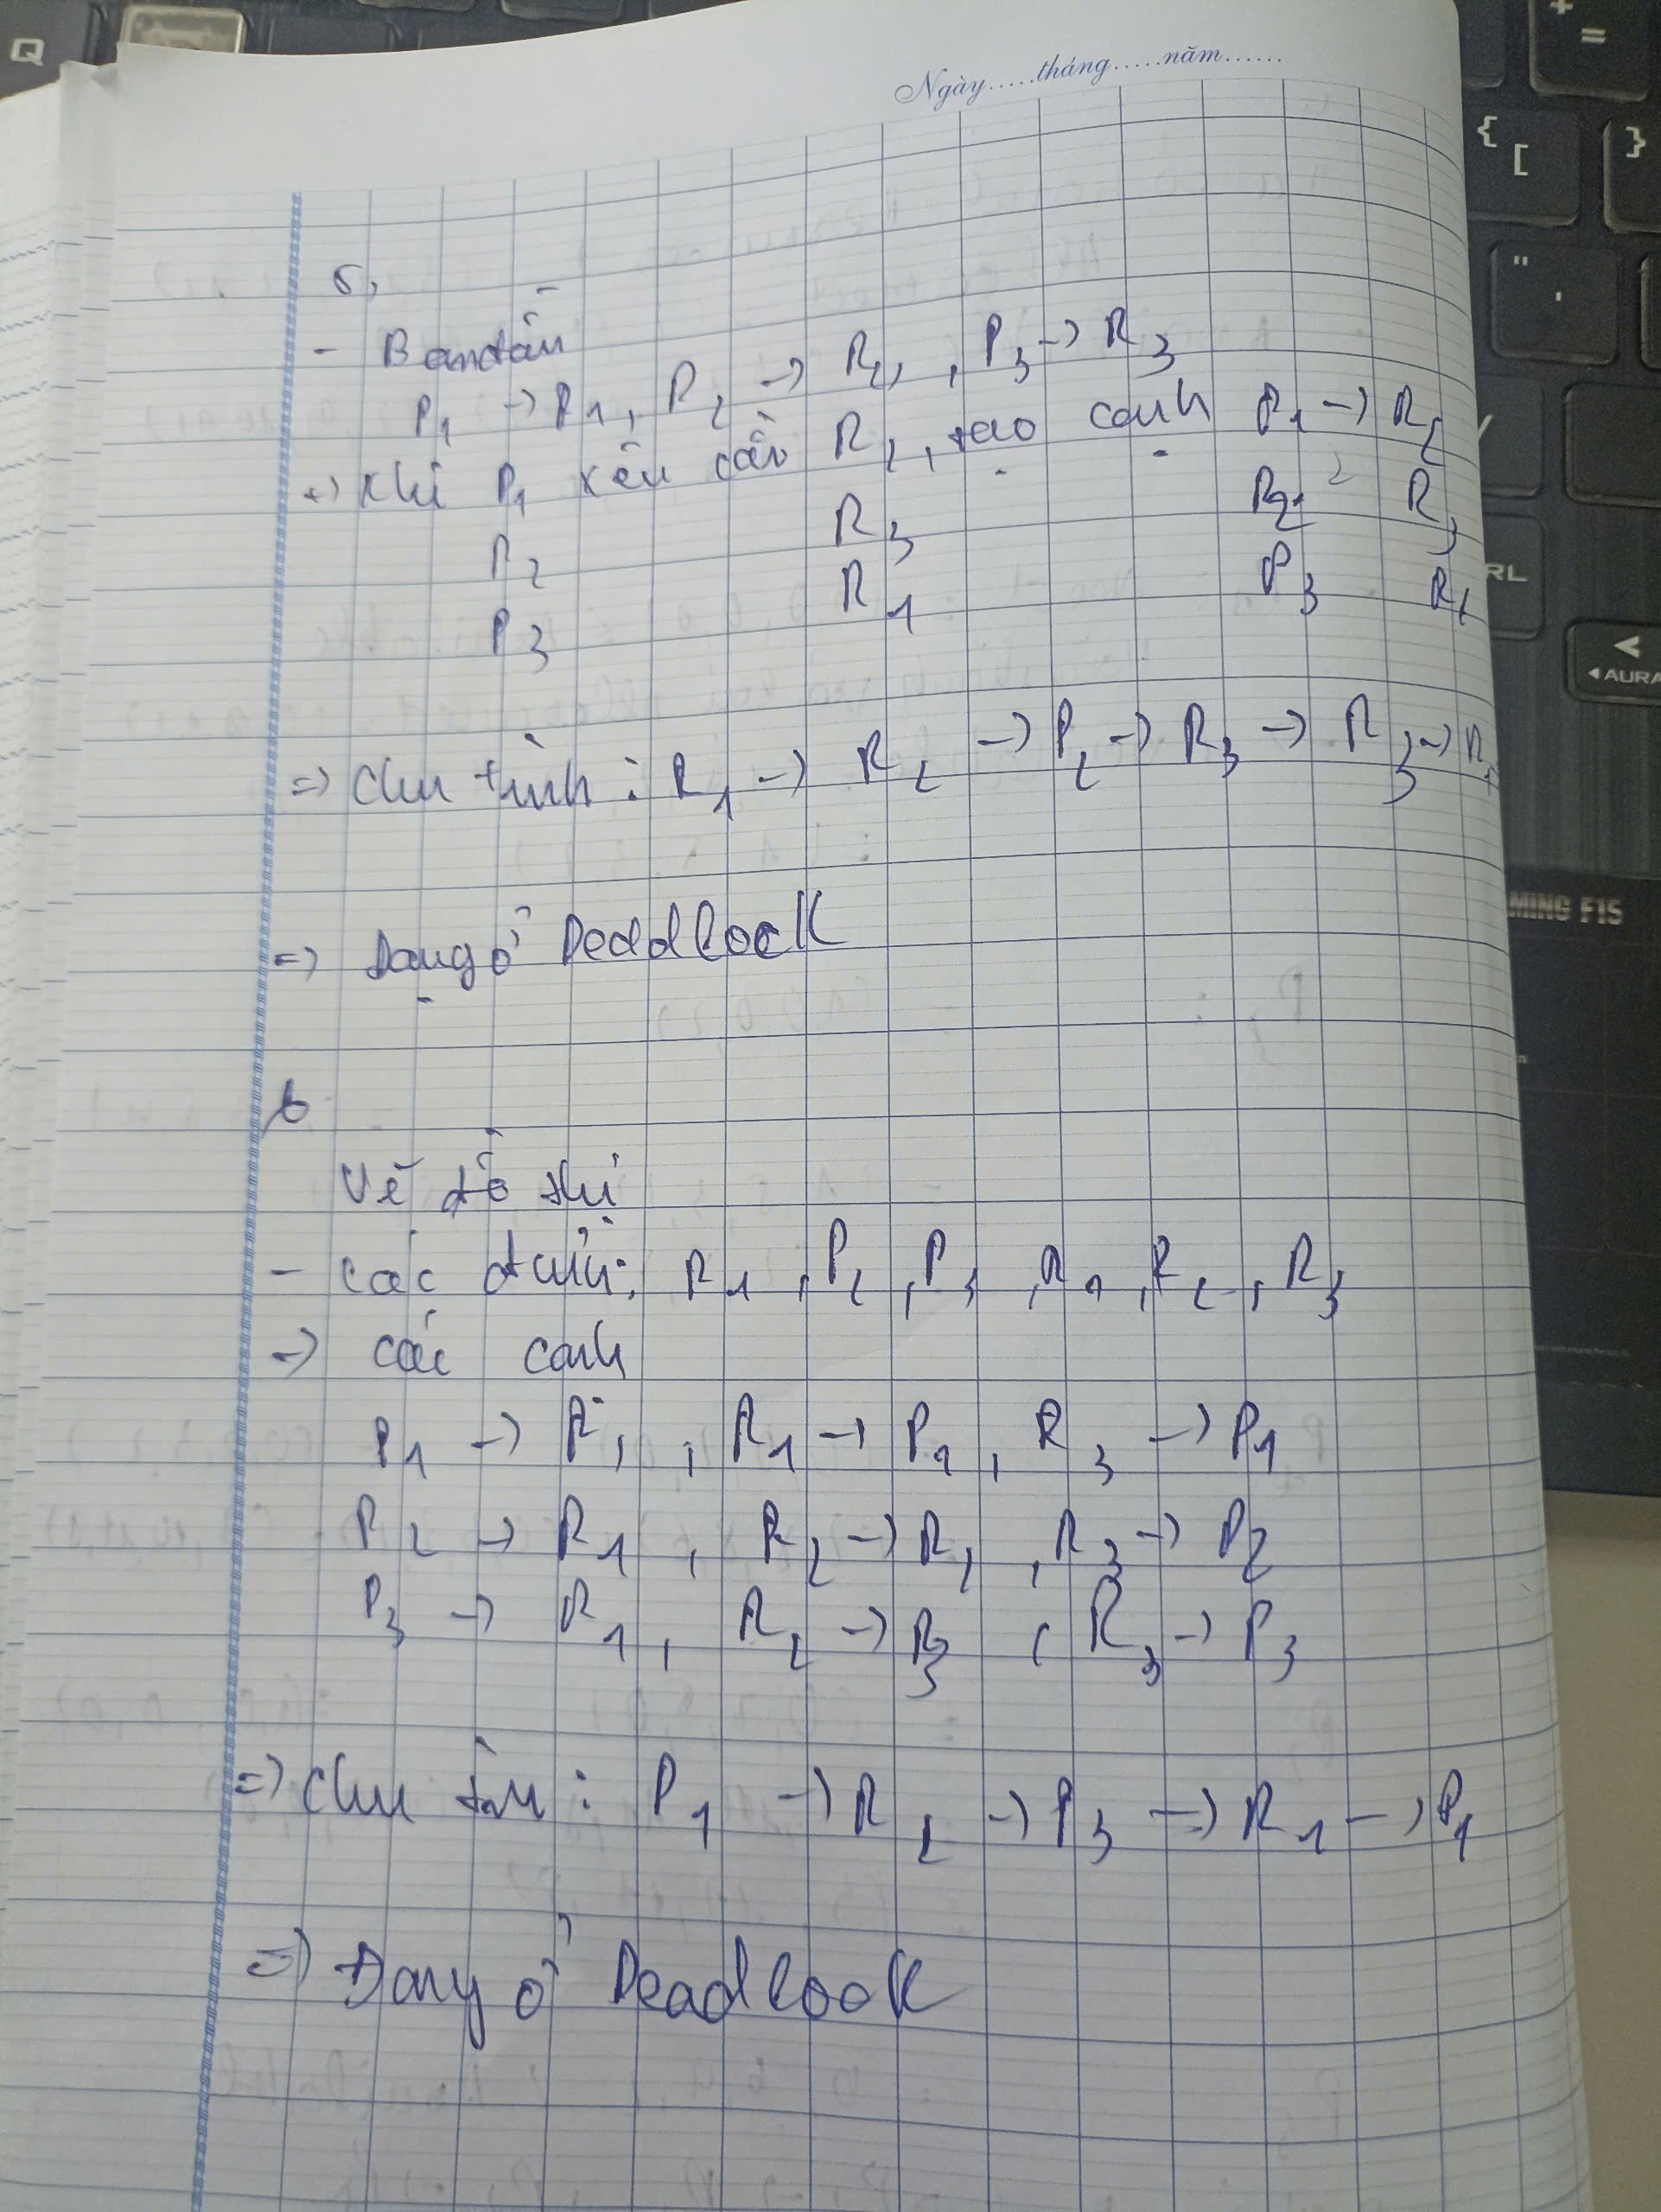 Ngày.....tháng.....năm......
5,
- Ban đầu
P1 -> R1, P2 -> R2, , P3 -> R3
=> Khi P1 yêu cầu R2, tạo cạnh P1 -> R2
P2 R3 P2 R3
P3 R1 P3 R1
=> Chu trình : R1 -> R2 -> P2 -> R3 -> R3 -> R1
=> Đang ở Deadlock
6
Vẽ đồ thị
- Các đỉnh: P1 , P2 , P3 , R1 , R2 , R3
=> các cạnh
P1 -> R1 , R1 -> P1 , R3 -> P1
P2 -> R1 , R2 -> R2 , R3 -> P2
P3 -> R1 , R2 -> P3 , R3 -> P3
=> Chu trình : P1 -> R2 -> P3 -> R1 -> P1
=> Đang ở Deadlock
Q
+
=
{
[
}
"
'
RL
<
AURA
MING F15